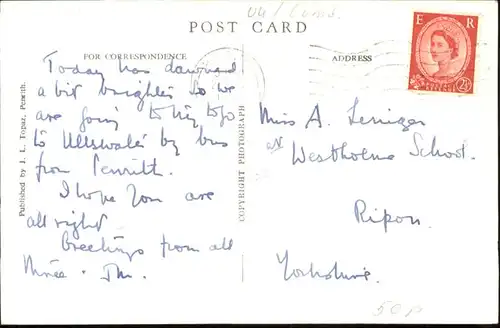 UK / Cumb.
POST CARD
FOR CORRESPONDENCE
ADDRESS
E R
2½
Today has dawned
a bit brighter so we
are going to try to go
to Ullswater by bus
from Penrith.
I hope you are
all right
Greetings from all
three.
Published by J. L. Topaz, Penrith.
COPYRIGHT PHOTOGRAPH
Miss A.
at Westholme School.
Ripon.
Yorkshire.
50p